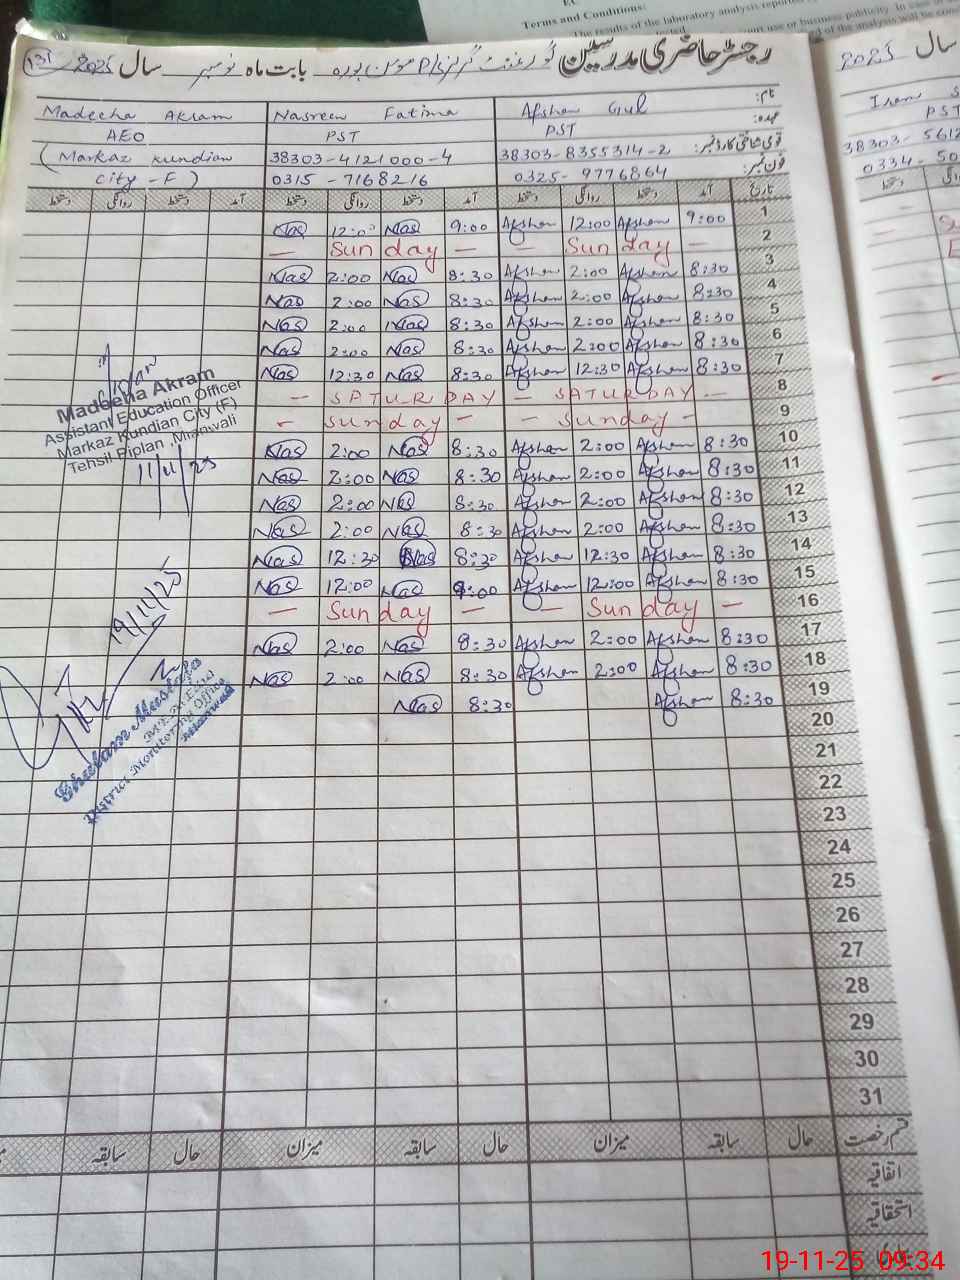 EC
Terms and Conditions:
The results of the laboratory analysis reported
court use or business publicity. In case of
of the analysis will be
رجسٹر حاضری مدرسین گورنمنٹ گرلز P/S مومن پورہ بابت ماہ نومبر سال 2025
سال 2025
نام: Afshan Gul Nasreen Fatima Madeeha Akram
عہدہ: PST PST AEO
قومی شناختی کارڈ نمبر: 38303-8355314-2 38303-4121000-4 (Markaz Kundian
فون نمبر: 0325-9776864 0315-7168216 City-F)
Iram
PST
38303-5612
0334-50
تاریخ آمد دستخط روانگی دستخط آمد دستخط روانگی دستخط آمد دستخط روانگی دستخط
1 9:00 Afshan 12:00 Afshan 9:00 Nas 12:00 Nas
2 — Sunday — — Sunday —
3 8:30 Afshan 2:00 Afshan 8:30 Nas 2:00 Nas
4 8:30 Afshan 2:00 Afshan 8:30 Nas 2:00 Nas
5 8:30 Afshan 2:00 Afshan 8:30 Nas 2:00 Nas
6 8:30 Afshan 2:00 Afshan 8:30 Nas 2:00 Nas
7 8:30 Afshan 12:30 Afshan 8:30 Nas 12:30 Nas
8 — SATURDAY — — SATURDAY —
9 — Sunday — — Sunday —
10 8:30 Afshan 2:00 Afshan 8:30 Nas 2:00 Nas
11 8:30 Afshan 2:00 Afshan 8:30 Nas 2:00 Nas
12 8:30 Afshan 2:00 Afshan 8:30 Nas 2:00 Nas
13 8:30 Afshan 2:00 Afshan 8:30 Nas 2:00 Nas
14 8:30 Afshan 12:30 Afshan 8:30 Nas 12:30 Nas
15 8:30 Afshan 12:00 Afshan 9:00 Nas 12:00 Nas
16 — Sunday — — Sunday —
17 8:30 Afshan 2:00 Afshan 8:30 Nas 2:00 Nas
18 8:30 Afshan 2:00 Afshan 8:30 Nas 2:00 Nas
19 8:30 Afshan 8:30 Nas
20
21
22
23
24
25
26
27
28
29
30
31
Madeeha Akram
Assistant Education Officer
Markaz Kundian City (F)
Tehsil Piplan, Mianwali
11/11/25
19/11/25
Ghulam Mustafa
District Monitoring Office
Mianwali
قسم رخصت حال سابقہ میزان حال سابقہ میزان حال سابقہ
اتفاقیہ
استحقاقیہ
19-11-25 09:34